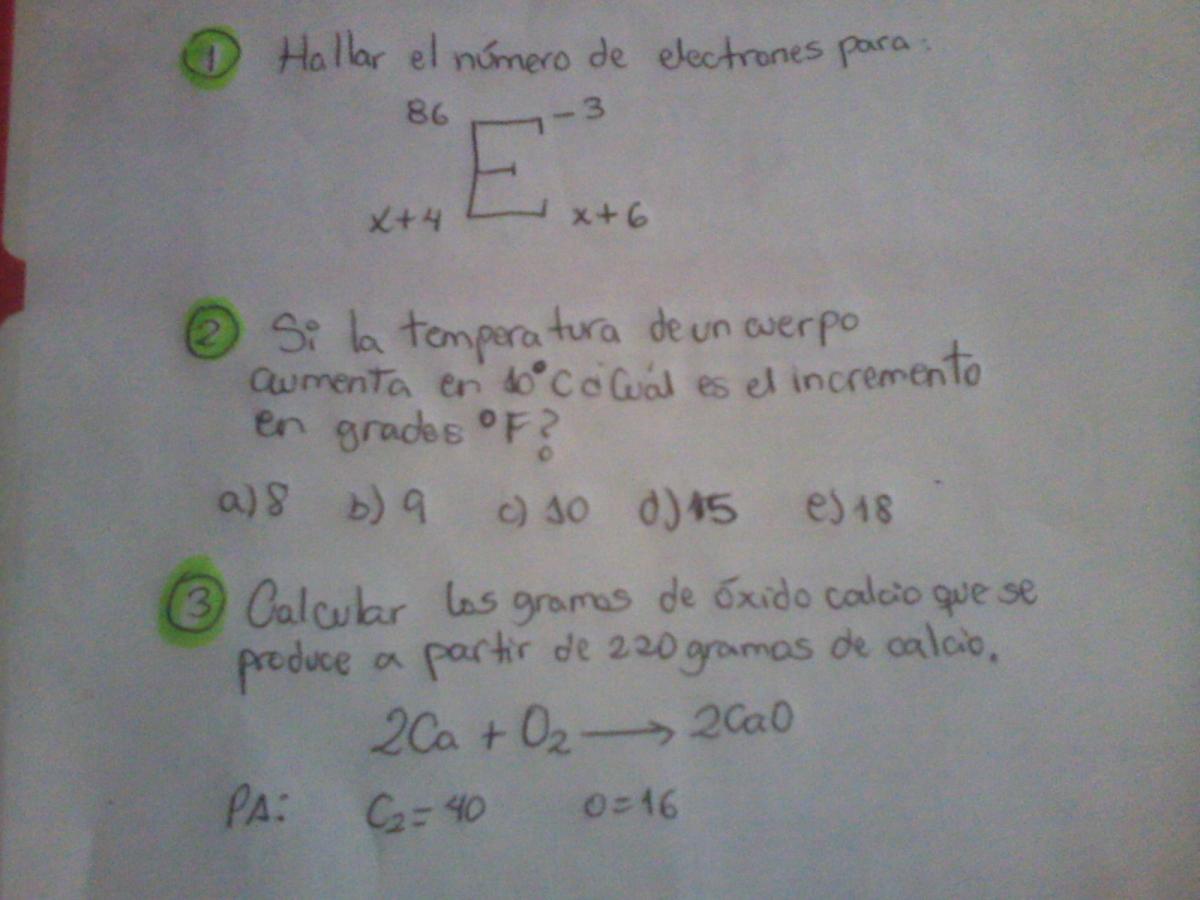 1 Hallar el número de electrones para:
86 E -3
x+4 x+6
2 Si la temperatura de un cuerpo
aumenta en 10°C ¿Cuál es el incremento
en grados °F?
a) 8 b) 9 c) 10 d) 15 e) 18
3 Calcular los gramos de óxido calcio que se
produce a partir de 220 gramos de calcio.
2Ca + O₂ → 2CaO
PA: C₂=40 O=16